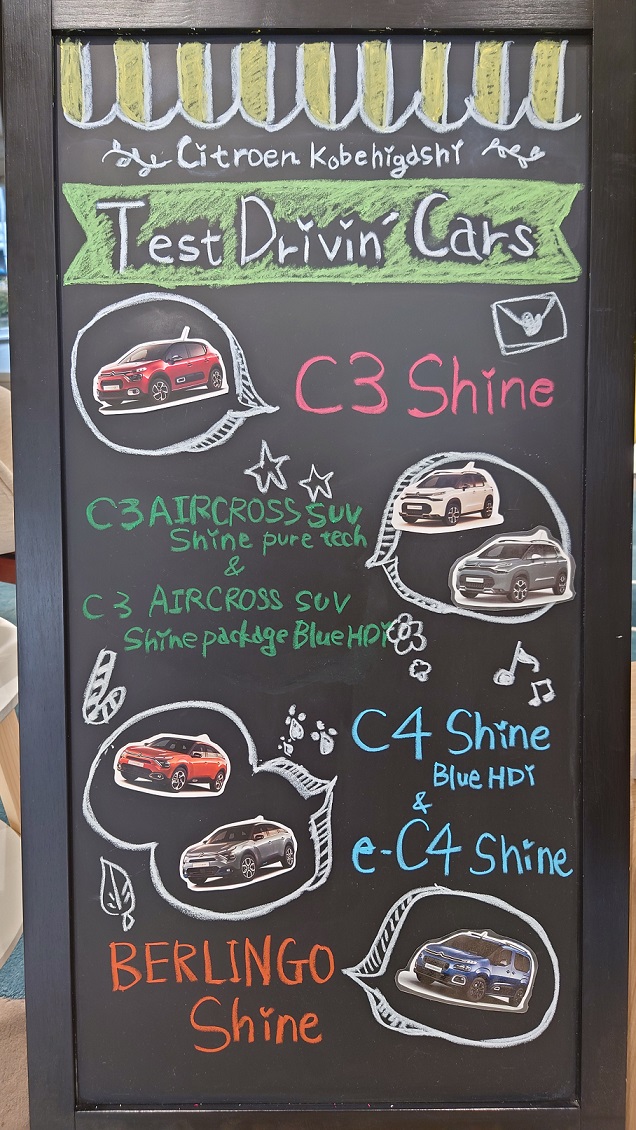 Citroen Kobehigashi
Test Drivin' Cars
C3 Shine
C3 AIRCROSS SUV
Shine pure tech
&
C3 AIRCROSS SUV
Shine package Blue HDi
C4 Shine
Blue HDi
&
e-C4 Shine
BERLINGO
Shine